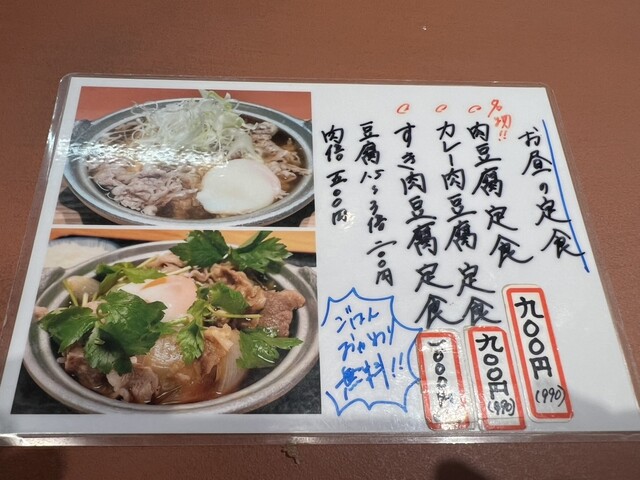 お昼の定食
名物!!
肉豆腐定食
九〇〇円
(990)
カレー肉豆腐定食
九〇〇円
(990)
すき肉豆腐定食
一〇〇〇円
豆腐
倍
一〇〇円
肉倍 五〇〇円
ごはん
おかわり
無料!!